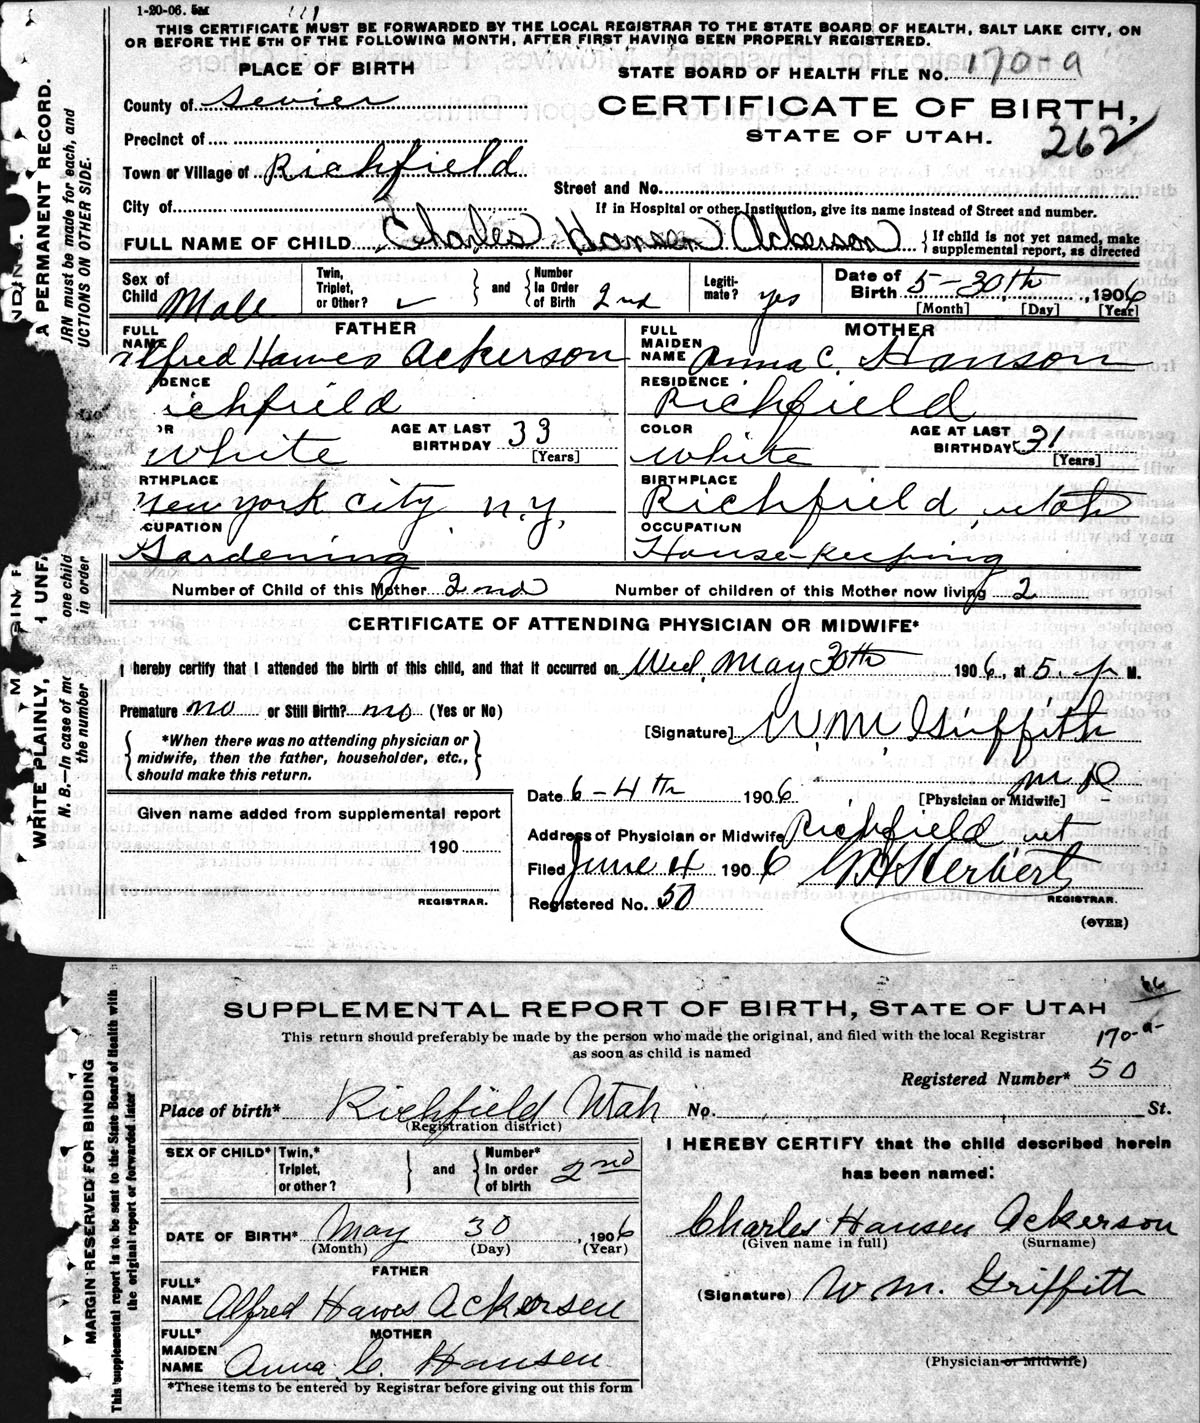 1-20-06. 5M
THIS CERTIFICATE MUST BE FORWARDED BY THE LOCAL REGISTRAR TO THE STATE BOARD OF HEALTH, SALT LAKE CITY, ON
OR BEFORE THE 5TH OF THE FOLLOWING MONTH, AFTER FIRST HAVING BEEN PROPERLY REGISTERED.
PLACE OF BIRTH
STATE BOARD OF HEALTH FILE No. 170-a
County of Sevier
CERTIFICATE OF BIRTH,
Precinct of
STATE OF UTAH.
262
Town or Village of Richfield
Street and No.
City of
If in Hospital or other Institution, give its name instead of Street and number.
FULL NAME OF CHILD Charles Hansen Ackerson { If child is not yet named, make supplemental report, as directed
Sex of Child Male
Twin, Triplet, or Other? and Number In Order of Birth 2nd
Legitimate? yes
Date of Birth 5-30th, 1906
[Month] [Day] [Year]
FATHER
MOTHER
FULL NAME Alfred Hawes Ackerson
FULL MAIDEN NAME Anna C. Hanson
DENCE ichfield
RESIDENCE Richfield
OR White AGE AT LAST BIRTHDAY 33 [Years]
COLOR White AGE AT LAST BIRTHDAY 31 [Years]
RTHPLACE New York City, N.Y.
BIRTHPLACE Richfield, Utah
CUPATION Gardening
OCCUPATION House-Keeping
Number of Child of this Mother 2nd Number of children of this Mother now living 2
CERTIFICATE OF ATTENDING PHYSICIAN OR MIDWIFE*
I hereby certify that I attended the birth of this child, and that it occurred on Wed, May 30th 1906, at 5. P M.
Premature no or Still Birth? no (Yes or No)
*When there was no attending physician or
midwife, then the father, householder, etc.,
should make this return.
[Signature] W.M. Griffith
M D
[Physician or Midwife]
Date 6-4th 1906
Given name added from supplemental report
190
REGISTRAR.
Address of Physician or Midwife Richfield, Ut
Filed June 4 1906 Herbert
REGISTRAR.
Registered No. 50
(OVER)
A PERMANENT RECORD.
WRITE PLAINLY,
SUPPLEMENTAL REPORT OF BIRTH, STATE OF UTAH
66
This return should preferably be made by the person who made the original, and filed with the local Registrar
as soon as child is named
170-a-
Registered Number* 50
Place of birth* Richfield Utah No. St.
(Registration district)
SEX OF CHILD* Twin,* Triplet, or other? and Number* In order of birth 2nd
I HEREBY CERTIFY that the child described herein
has been named:
DATE OF BIRTH* May 30, 1906
(Month) (Day) (Year)
Charles Hansen Ackerson
(Given name in full) (Surname)
FATHER
FULL* NAME Alfred Hawes Ackersen
(Signature) W M. Griffith
MOTHER
FULL* MAIDEN NAME Anna C. Hansen
(Physician or Midwife)
*These items to be entered by Registrar before giving out this form
MARGIN RESERVED FOR BINDING
This supplemental report is to be sent to the State Board of Health with
the original report or forwarded later